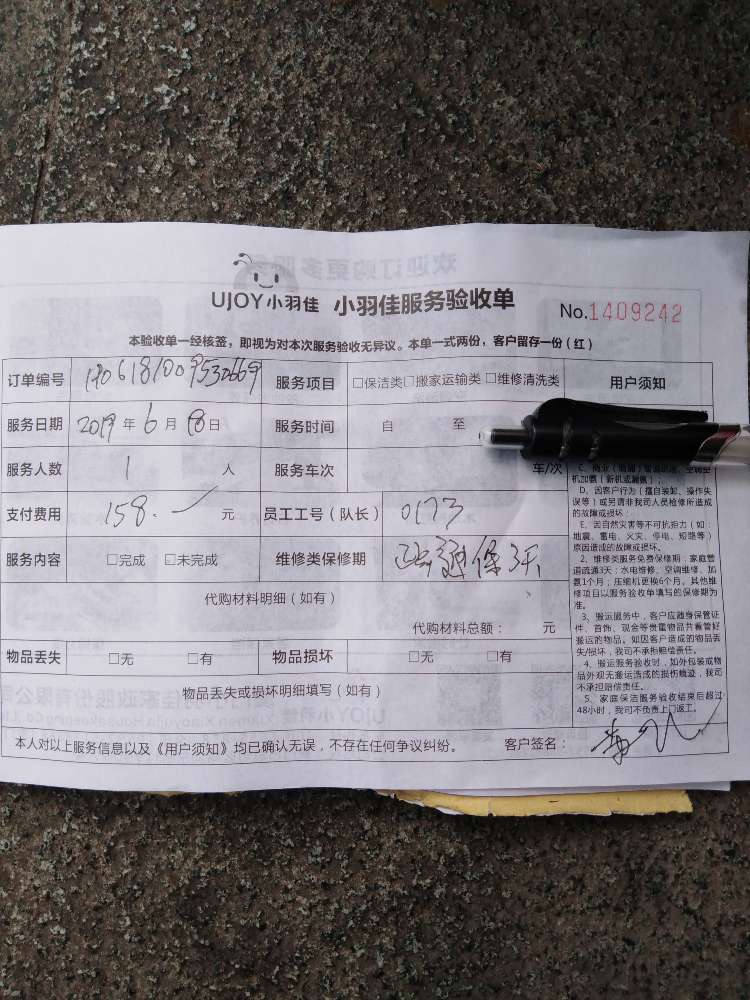 UJOY小羽佳 小羽佳服务验收单 No.1409242
本验收单一经核签，即视为对本次服务验收无异议。本单一式两份，客户留存一份（红）
订单编号 服务项目 □保洁类□搬家运输类□维修清洗类 用户须知
服务日期 2019年6月18日 服务时间 自 至
服务人数 1 人 服务车次 车/次
支付费用 158. 元 员工工号（队长） 0173
服务内容 □完成 未完成 维修类保修期 保3天
代购材料明细（如有）
代购材料总额： 元
物品丢失 □无 □有 物品损坏 □无 □有
物品丢失或损坏明细填写（如有）
本人对以上服务信息以及《用户须知》均已确认无误，不存在任何争议纠纷。 客户签名：
机加氨（新机或漏氨）；
D、因客户行为（擅自装卸、操作失
误等）或另请非我司人员检修所造成
的故障或损坏；
E、因自然灾害等不可抗拒力（如：
地震、雷电、火灾、停电、短路等）
原因造成的故障或损坏。
2、维修类服务免费保修期：家庭管
道疏通3天；水电维修、空调维修、加
氨1个月；压缩机更换6个月。其他维
修项目以服务验收单填写的保修期为
准。
3、搬运服务中，客户应随身保管证
件、首饰、现金等贵重物品并看管好
搬运的物品。如因客户造成的物品丢
失/损坏，我司不承担赔偿责任。
4、搬运服务验收时，如外包装或物
品外观无搬运造成的损伤痕迹，我司
不承担赔偿责任。
5、家庭保洁服务验收结束后超过
48小时，我司不负责上门返工。